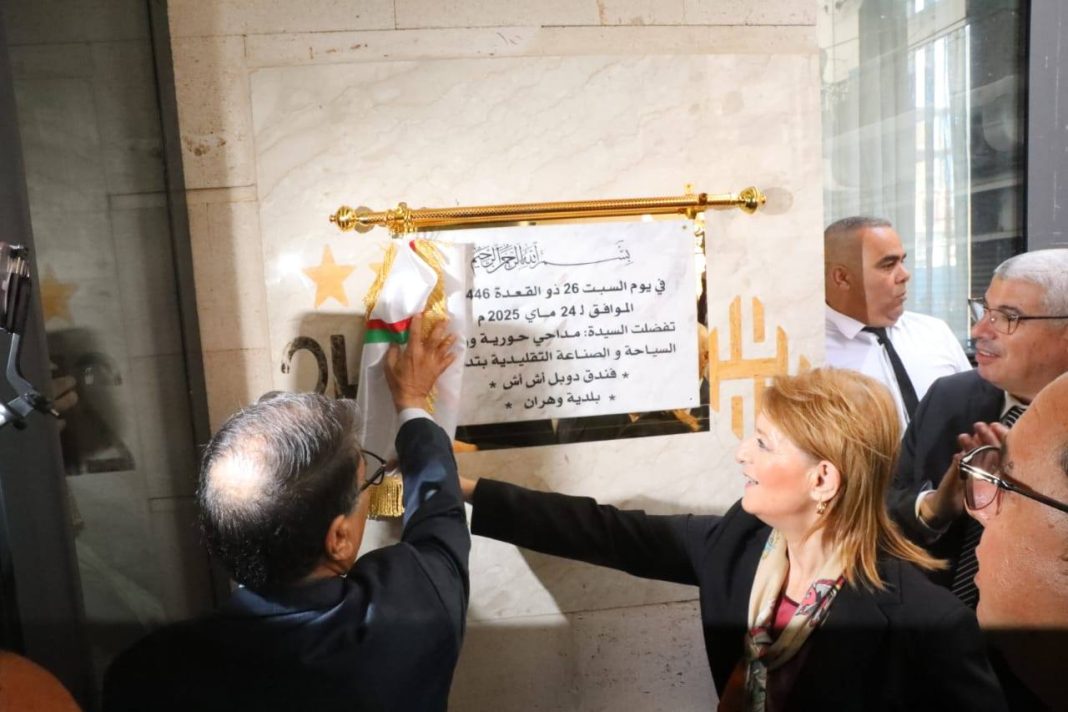 بسم الله الرحمن الرحيم
في يوم السبت 26 ذو القعدة 446
الموافق لـ 24 ماي 2025 م
تفضلت السيدة: مداحي حورية و
السياحة و الصناعة التقليدية بتد
* فندق دوبل أش أش *
* بلدية وهران *